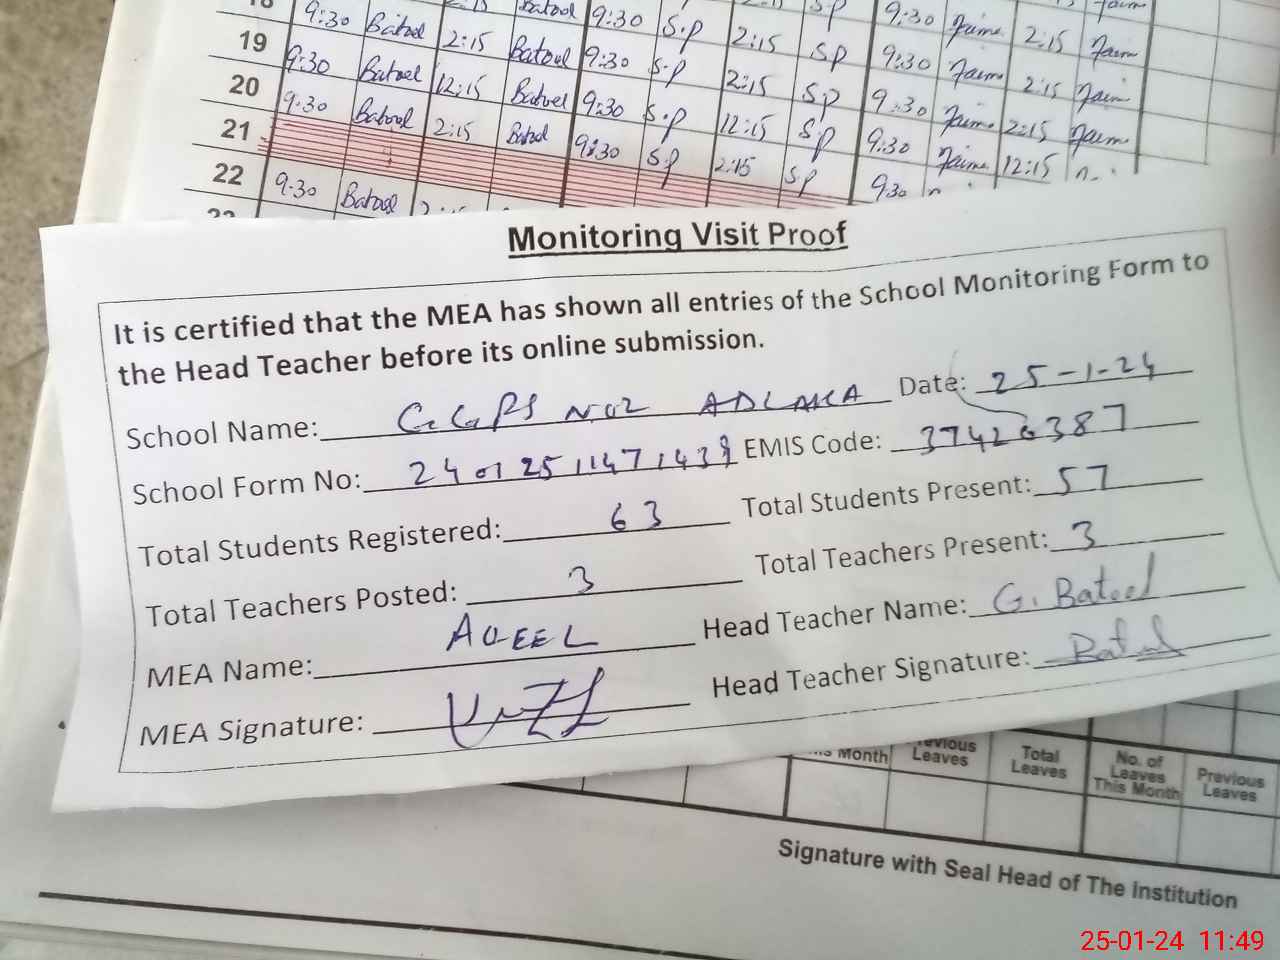 18 9:30 Batool 2:15 Batool 9:30 S.p 2:15 Sp 9:30 Jaim 2:15 Jaim
19 9:30 Batool 12:15 Batool 9:30 S.p 2:15 Sp 9:30 Jaim 2:15 Jaim
20 9:30 Batool 2:15 Batool 9:30 S.p 12:15 Sp 9:30 Jaim 2:15 Jaim
21 9:30 S.p 2:15 Sp 9:30 Jaim 12:15
22 9:30 Batool 9:30
Monitoring Visit Proof
It is certified that the MEA has shown all entries of the School Monitoring Form to
the Head Teacher before its online submission.
School Name: GGPS NO2 ADLAKA Date: 25-1-24
School Form No: 2401251147143 EMIS Code: 37426387
Total Students Registered: 63 Total Students Present: 57
Total Teachers Posted: 3 Total Teachers Present: 3
MEA Name: AQEEL Head Teacher Name: G. Batool
MEA Signature: Head Teacher Signature: Batool
Month Previous Leaves Total Leaves No. of Leaves This Month Previous Leaves
Signature with Seal Head of The Institution
25-01-24 11:49